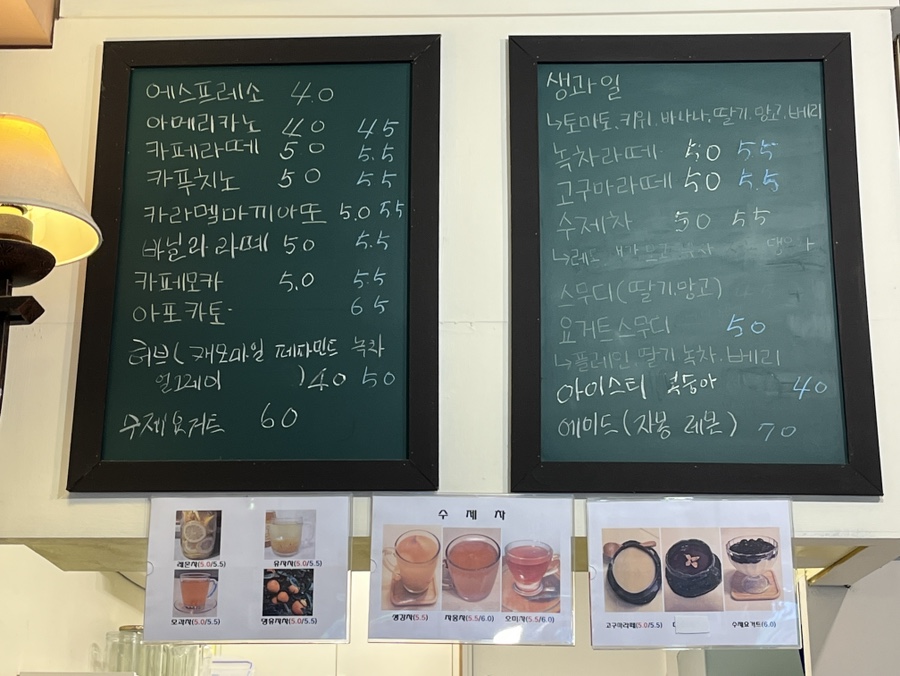 에스프레소 4.0
아메리카노 4.0 4.5
카페라떼 5.0 5.5
카푸치노 5.0 5.5
카라멜마끼아또 5.0 5.5
바닐라라떼 5.0 5.5
카페모카 5.0 5.5
아포카토 6.5
허브(캐모마일 페파민트 녹차
얼그레이 ) 4.0 5.0
수제요거트 6.0
생과일
↳토마토.키위.바나나,딸기.망고.베리
녹차라떼 5.0 5.5
고구마라떼 5.0 5.5
수제차 5.0 5.5
↳레드
스무디(딸기.망고)
요거트스무디 5.0
↳플레인.딸기 녹차.베리
아이스티 복숭아 4.0
에이드(자몽 레몬) 7.0
레몬차(5.0/5.5) 유자차(5.0/5.5)
모과차(5.0/5.5) 댕유자차(5.0/5.5)
수 제 차
생강차(5.5) 자몽차(5.5/6.0) 오미차(5.5/6.0)
고구마라떼(5.0/5.5) 수제요거트(6.0)